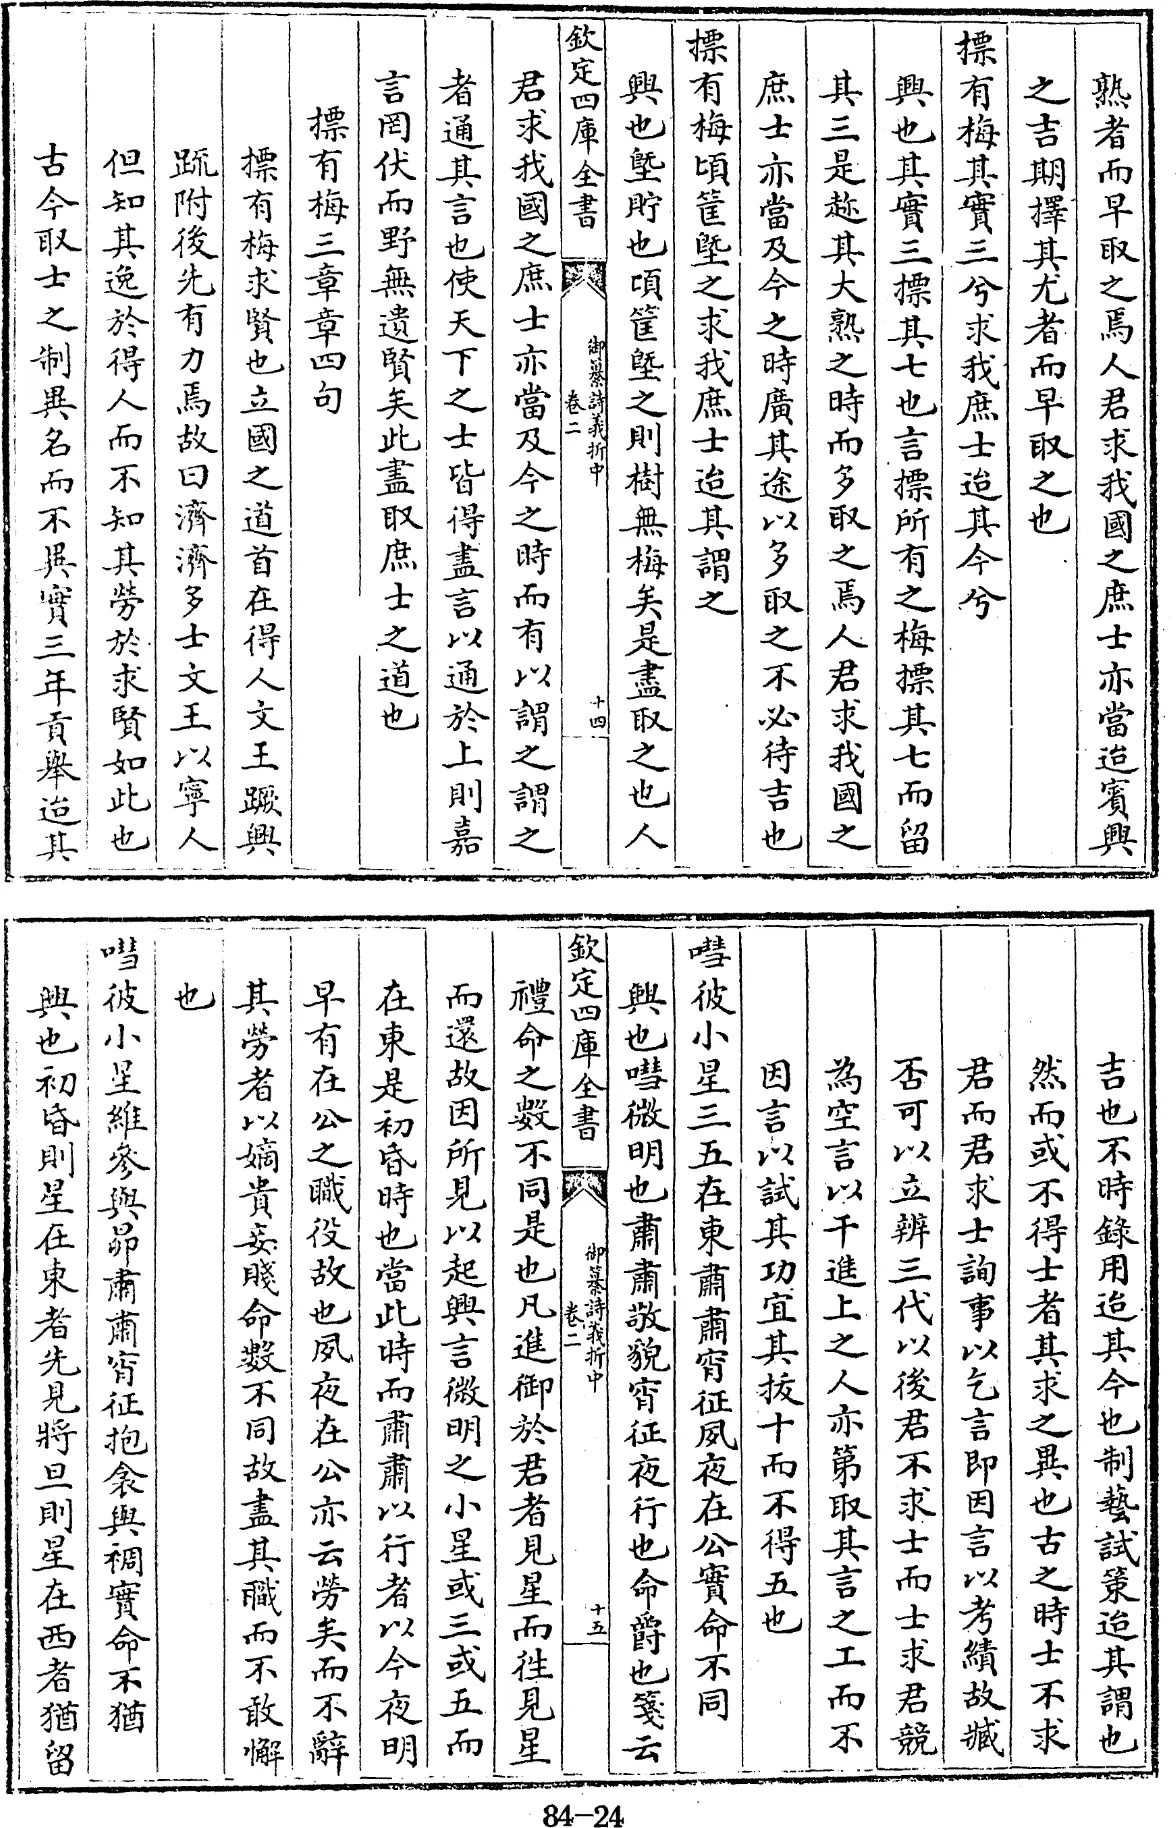 熟者而早取之焉人君求我國之庶士亦當迨賓興
之吉期擇其尤者而早取之也
摽有梅其實三兮求我庶士迨其今兮
興也其實三摽其七也言摽所有之梅摽其七而留
其三是趂其大熟之時而多取之焉人君求我國之
庶士亦當及今之時廣其途以多取之不必待吉也
摽有梅頃筐塈之求我庶士迨其謂之
興也塈貯也頃筐塈之則樹無梅矣是盡取之也人
欽定四庫全書 御纂詩義折中 卷二 十四
君求我國之庶士亦當及今之時而有以謂之謂之
者通其言也使天下之士皆得盡言以通於上則嘉
言罔伏而野無遺賢矣此盡取庶士之道也
摽有梅三章章四句
摽有梅求賢也立國之道首在得人文王蹶興
䟽附後先有力焉故曰濟濟多士文王以寧人
但知其逸於得人而不知其勞於求賢如此也
古今取士之制異名而不異實三年貢舉迨其
吉也不時錄用迨其今也制藝試策迨其謂也
然而或不得士者其求之異也古之時士不求
君而君求士詢事以乞言即因言以考績故臧
否可以立辨三代以後君不求士而士求君競
為空言以干進上之人亦第取其言之工而不
因言以試其功宜其拔十而不得五也
嘒彼小星三五在東肅肅宵征夙夜在公實命不同
興也嘒微明也肅肅敬貌宵征夜行也命爵也箋云
欽定四庫全書 御纂詩義折中 卷二 十五
禮命之數不同是也凡進御於君者見星而徃見星
而還故因所見以起興言微明之小星或三或五而
在東是初昏時也當此時而肅肅以行者以今夜明
早有在公之職役故也夙夜在公亦云勞矣而不辭
其勞者以嫡貴妾賤命數不同故盡其職而不敢懈
也
嘒彼小星維參與昴肅肅宵征抱衾與裯實命不猶
興也初昏則星在東者先見將旦則星在西者猶留
84-24